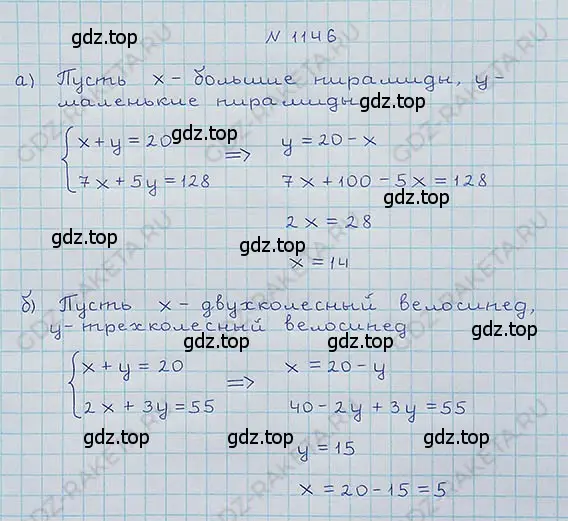 gdz.top
N 1146
а) Пусть x - большие пирамиды, y -
маленькие пирамиды
gdz.top
{ x + y = 20 => y = 20 - x
7x + 5y = 128 7x + 100 - 5x = 128
gdz.top
gdz.top
2x = 28
gdz.top
gdz.top
x = 14
б) Пусть x - двухколесный велосипед,
y - трехколесный велосипед
gdz.top
gdz.top
{ x + y = 20 => x = 20 - y
2x + 3y = 55 40 - 2y + 3y = 55
gdz.top
gdz.top
y = 15
gdz.top
x = 20 - 15 = 5
gdz.top
gdz.top
GDZ-RAKETA.RU